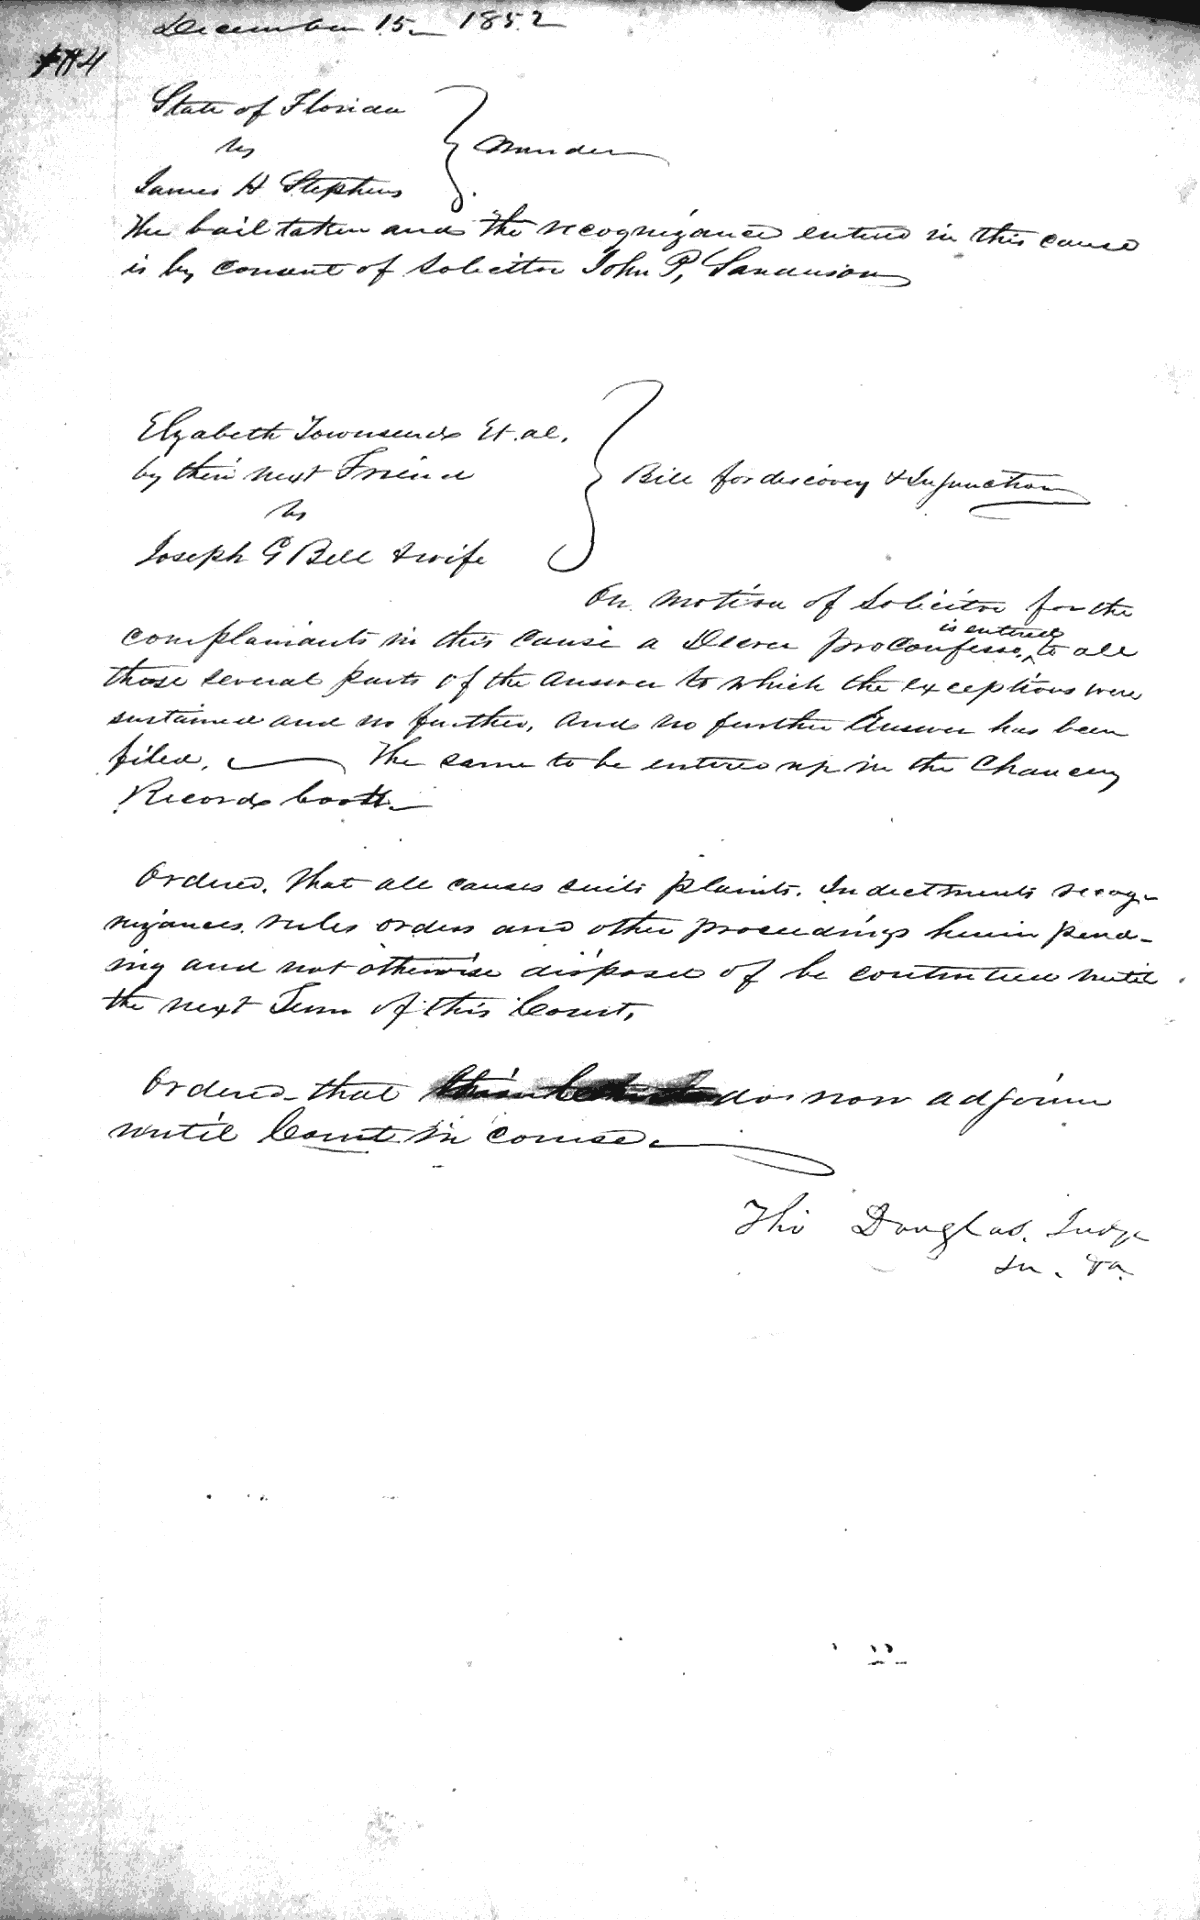 December 15_ 1852
State of Florida
vs
Murder
James H Stephens
The bail taken and the recognizance entered in this cause
is by consent of Solicitor John P. Sanderson
Elizabeth Townsend Et. al.
by their next Friend
vs
Bill for discovery & Injunction
Joseph G Bell & wife
On motion of Solicitor for the
complainants in this cause a Decree pro Confesso, is entered to all
those several parts of the answer to which the exceptions were
sustained and no further, and no further Answer has been
filed. The same to be entered up in the Chancery
Records book_
Ordered. That all causes suits plaints. Indictments recog-
nizances. rules orders and other proceedings herein pend-
ing and not otherwise disposed of be continued until
the next Term of this Court.
Ordered that do now adjourn
until Court in course.
Tho Douglas. Judge